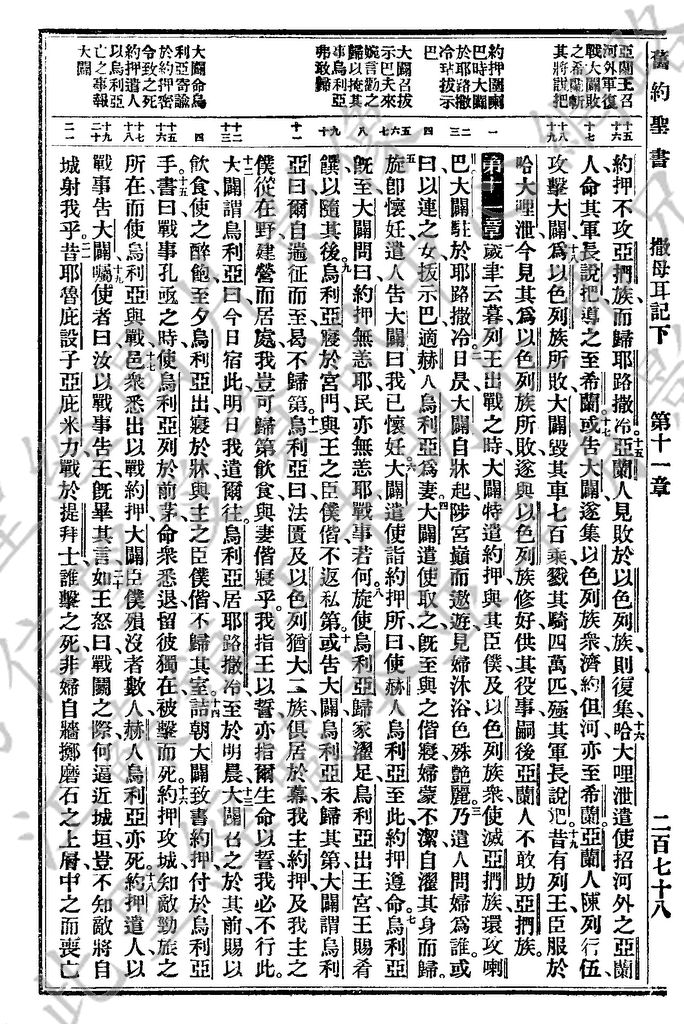 舊約聖書 撒母耳記下 第十一章 二百七十八
亞蘭王召
河外軍復
戰大闢敗
之希蘭斬
其將說把
約押圍喇
巴時大闢
於耶路撒
冷玷拔示
巴
大闢召拔
示巴夫來
婉言勸之
歸以掩其
事烏利亞
弗敢歸
大闢命烏
利亞寄諭
於約押密
令致之死
約押遣人
以烏利亞
亡之事報
大闢
約押不攻亞捫族而歸耶路撒冷亞蘭人見敗於以色列族則復集哈大哩泄遣使招河外之亞蘭
人命其軍長說把導之至希蘭或告大闢遂集以色列族衆濟約但河亦至希蘭亞蘭人陳列行伍
攻擊大闢爲以色列族所敗大闢毀其車七百乘戮其騎四萬匹殛其軍長說把昔有列王臣服於
哈大哩泄今見其爲以色列族所敗遂與以色列族修好供其役事嗣後亞蘭人不敢助亞捫族
第十一章歲聿云暮列王出戰之時大闢特遣約押與其臣僕及以色列族衆使滅亞捫族環攻喇
巴大闢駐於耶路撒冷日昃大闢自牀起陟宮巔而遨遊見婦沐浴色殊艷麗乃遣人問婦爲誰或
曰以連之女拔示巴適赫人烏利亞爲妻大闢遣使取之旣至與之偕寢婦蒙不潔自濯其身而歸
旋卽懷妊遣人告大闢曰我已懷妊大闢遣使詣約押所曰使赫人烏利亞至此約押遵命烏利亞
旣至大闢問曰約押無恙耶民亦無恙耶戰事若何旋使烏利亞歸家濯足烏利亞出王宮王賜肴
饌以隨其後烏利亞寢於宮門與王之臣僕偕不返私第或告大闢烏利亞未歸其第大闢謂烏利
亞曰爾自遄征而至曷不歸第烏利亞曰法匱及以色列猶大二族俱居於幕我主約押及我主之
僕從在野建營而居處我豈可歸第飲食與妻偕寢乎我指王以誓亦指爾生命以誓我必不行此
大闢謂烏利亞曰今日宿此明日我遣爾往烏利亞居耶路撒冷至於明晨大闢召之於其前賜以
飲食使之醉飽至夕烏利亞出寢於牀與主之臣僕偕不歸其室詰朝大闢致書約押付於烏利亞
手書曰戰事孔亟之時使烏利亞列於前茅命衆悉退留彼獨在被擊而死約押攻城知敵勁旅之
所在而使烏利亞與戰邑衆悉出以戰約押大闢臣僕殞沒者數人赫人烏利亞亦死約押遣人以
戰事告大闢囑使者曰汝以戰事告王旣畢其言如王怒曰戰鬬之際何逼近城垣豈不知敵將自
城射我乎昔耶魯庇設子亞庇米力戰於提拜士誰擊之死非婦自牆擲磨石之上層中之而喪亡